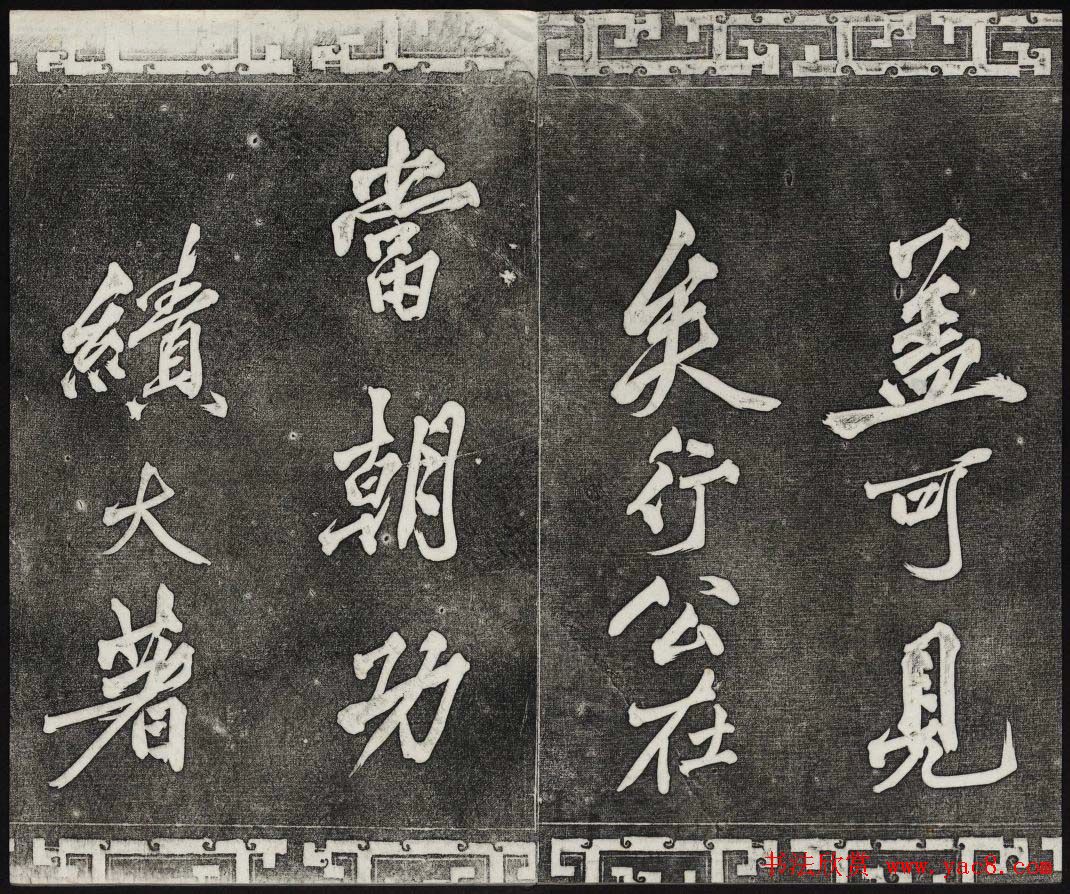 盖可見
矣行公在
當朝功
績大著
书法欣赏 www.yac8.com